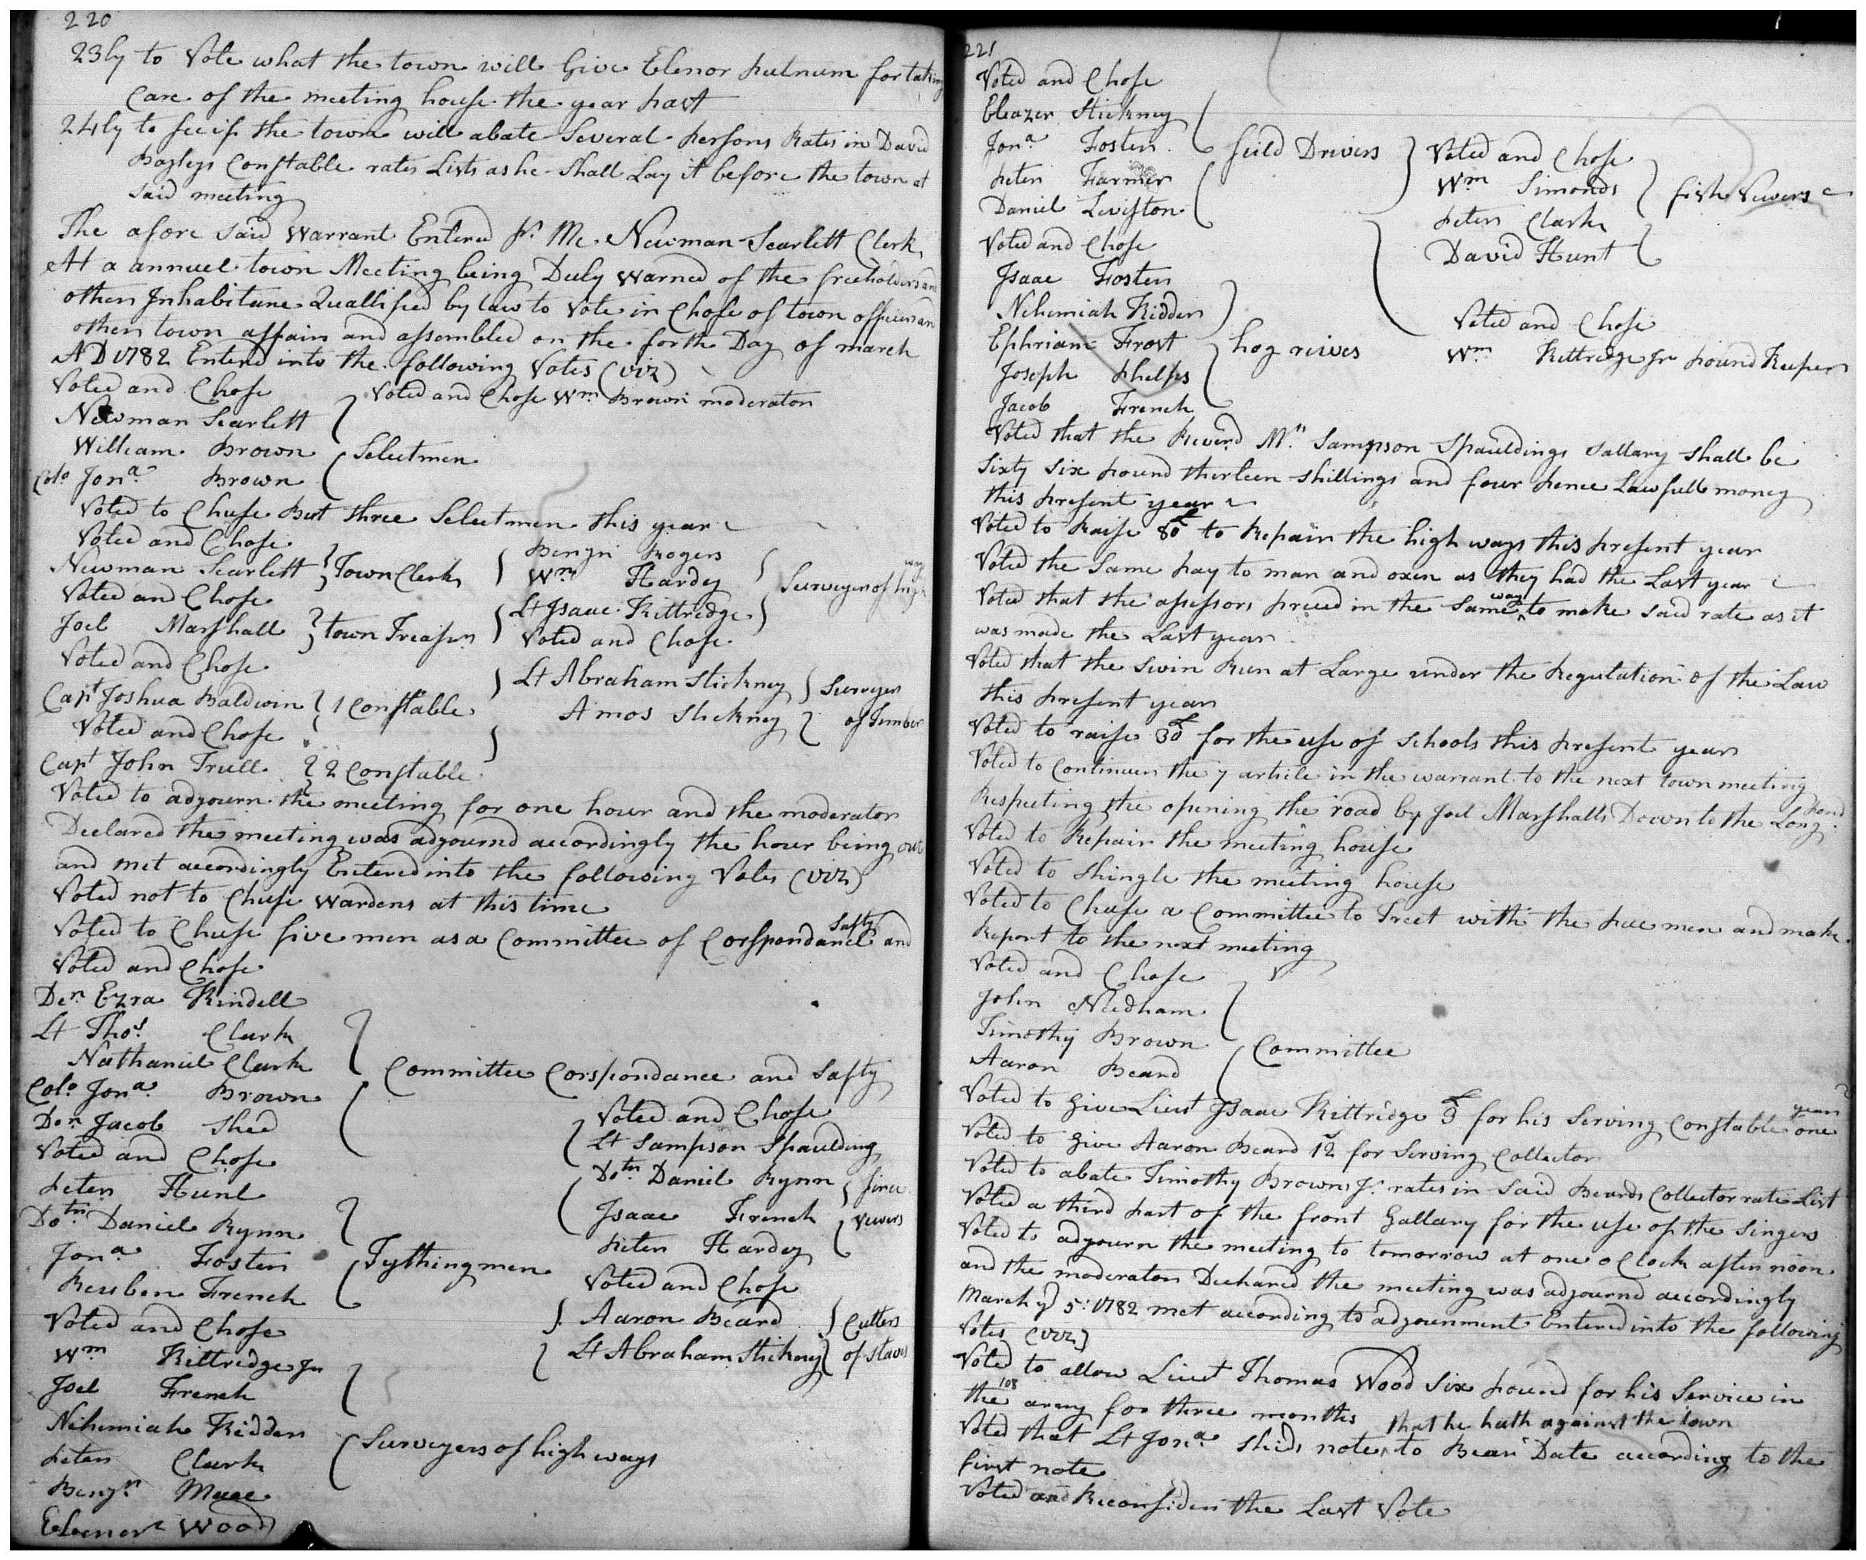 220
23ly to Vote what the town will Give Elenor putnum for taking
Care of the meeting house the year past
24ly to see if the town will abate Several persons Rates in David
Bayleys Constable rates Lists as he Shall Lay it before the town at
said meeting
The afore said Warrant Entered pr. Me. Newman Scarlett Clerk
At a annuel town Meeting being Duly Warned of the freeholders and
other Inhabitanc Quallified by law to Vote in Chose of town officers and
other town affairs and assembled on the forth Day of march
AD 1782 Entered into the following Votes (viz)
Voted and Chose Wm Brown moderator
Voted and Chose
Newman Scarlett
William Brown
Colo Jona Brown
Selectmen
Voted to Chuse But three Selectmen this year
Voted and Chose
Newman Scarlett } Town Clerk
Voted and Chose
Joel Marshall } town Treasurer
Voted and Chose
Capt Joshua Baldwin } 1 Constable
Voted and Chose
Capt John Trull } 2 Constable
Benjn Rogers
Wm Hardey
Lt Isaac Kittridge
Surveyers of high ways
Voted and Chose
Lt Abraham Stickney
Amos Stickney
Surveyers of Timber
Voted to adjourn the meeting for one hour and the moderator
Declared the meeting was adjournd accordingly the hour being out
and met accordingly Entered into the following Votes (viz)
Voted not to Chuse Wardens at this time
Voted to Chuse five men as a Committee of Corspondance and Safty
Voted and Chose
Den Ezra Kindell
Lt Thos Clark
Nathaniel Clark
Colo Jona Brown
Den Jacob Shed
Committee Corspondance and Safty
Voted and Chose
Peter Hunt
Dotn Daniel Kynn
Jona Foster
Reuben French
Tythingmen
Voted and Chose
Wm Kittredge Jr
Joel French
Nehemiah Kidder
Peter Clark
Benjn
Eleenor Wood
Surveyers of high ways
Voted and Chose
Lt Sampson Spaulding
Dotn Daniel Kynn
Isaac French
Peter Hardey
fince Vewers
Voted and Chose
Aaron Beard
Lt Abraham Stickney
Cullers of Staves
221
Voted and Chose
Eleazer Stickney
Jona Foster
Peter Farmer
Daniel Levistton
feild Drivers
Voted and Chose
Isaac Foster
Nehemiah Kidder
Ephriam Frost
Joseph Phelps
Jacob French
hog reives
Voted and Chose
Wm Simonds
Peter Clark
David Hunt
fish Vewers
Voted and Chose
Wm Kittredge Jr pound Keeper
Voted that the Reverd Mr Sampson Spauldings Sallary shall be
Sixty Six pound thirteen Shillings and four pence Lawfull money
this present year
Voted to Raise 80£ to Repain the high ways this present year
Voted the Same pay to man and oxen as they had the Last year
Voted that the assessors preed in the Same way to make said rate as it
was made the Last year
Voted that the Swin Run at Large under the Regulation of the Law
this present year
Voted to raise 30£ for the use of Schools this present year
Voted to Continuen the 7 article in the warrant to the next town meeting
Respecting the opening the road by Joel Marshalls Down to the Long pond
Voted to Repair the meeting house
Voted to Shingle the meeting house
Voted to Chuse a Committee to Treet with the pue men and make
Report to the next meeting
Voted and Chose
John Needham
Timothy Brown
Aaron Beard
Committee
Voted to Give Lieut Isaac Kittridge 9£ for his Serving Constable one year
Voted to Give Aaron Beard 12 for Serving Collector
Voted to abate Timothy Browns Jr rates in Said Beards Collector rate List
Voted a third part of the front Gallary for the use of the Singers
Voted to adjourn the meeting to tomorrow at one o Clock after noon
and the moderator Dechared the meeting was adjournd accordingly
March ye 5: 1782 met according to adjournment Entered into the following
Votes (viz)
Voted to allow Lieut Thomas Wood Six pound for his Service in
the army for three months
Voted that Lt Jona Sheds notes that he hath against the town to Bear Date according to the
first note
Voted and Reconsider the Last Vote